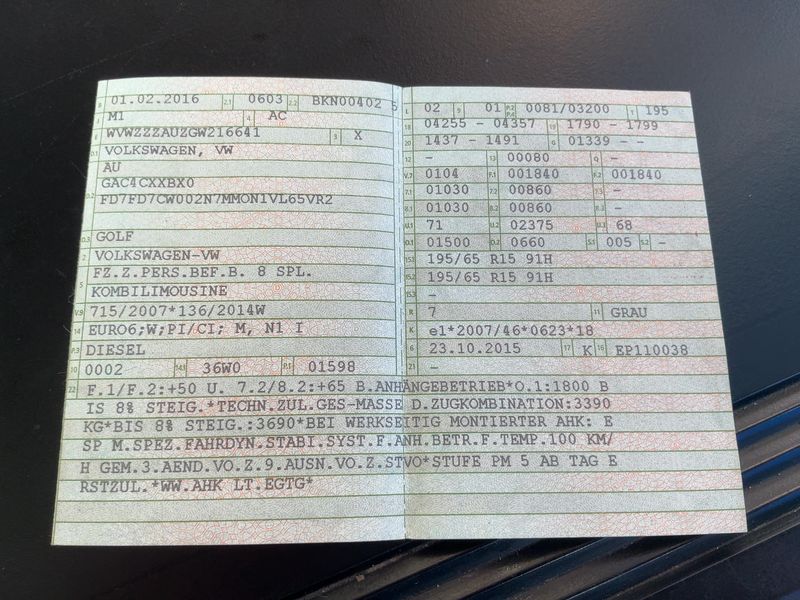 B 01.02.2016 2.1 0603 2.2 BKN00402 5
J M1 4 AC
E WVWZZZAUZGW216641 3 X
D.1 VOLKSWAGEN, VW
AU
D.2 GAC4CXXBX0
FD7FD7CW002N7MMON1VL65VR2
D.3 GOLF
2 VOLKSWAGEN-VW
5 FZ.Z.PERS.BEF.B. 8 SPL.
KOMBILIMOUSINE
V.9 715/2007*136/2014W
14 EURO6;W;PI/CI; M, N1 I
P.3 DIESEL
10 0002 14.1 36W0 P.1 01598
L 02 9 01 P.2 P.4 0081/03200 T 195
18 04255 - 04357 19 1790 - 1799
20 1437 - 1491 G 01339 - -
12 - 13 00080 Q -
V.7 0104 F.1 001840 F.2 001840
7.1 01030 7.2 00860 7.3 -
8.1 01030 8.2 00860 8.3 -
U.1 71 U.2 02375 U.3 68
O.1 01500 O.2 0660 S.1 005 S.2 -
15.1 195/65 R15 91H
15.2 195/65 R15 91H
15.3 -
R 7 11 GRAU
K e1*2007/46*0623*18
6 23.10.2015 17 K 16 EP110038
21 -
22 F.1/F.2:+50 U. 7.2/8.2:+65 B.ANHÄNGEBETRIEB*O.1:1800 B
IS 8% STEIG.*TECHN.ZUL.GES-MASSE D.ZUGKOMBINATION:3390
KG*BIS 8% STEIG.:3690*BEI WERKSEITIG MONTIERTER AHK: E
SP M.SPEZ.FAHRDYN.STABI.SYST.F.ANH.BETR.F.TEMP.100 KM/
H GEM.3.AEND.VO.Z.9.AUSN.VO.Z.STVO*STUFE PM 5 AB TAG E
RSTZUL.*WW.AHK LT.EGTG*